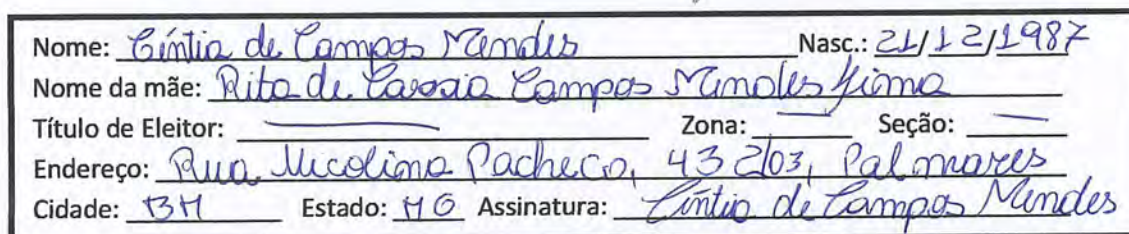 Nome: Cíntia de Campos Mendes Nasc.: 21/12/1987
Nome da mãe: Rita de Cassia Campos Mendes
Título de Eleitor: — Zona: — Seção: —
Endereço: Rua Nicolina Pacheco, 43 203, Palmares
Cidade: BH Estado: MG Assinatura: Cíntia de Campos Mendes